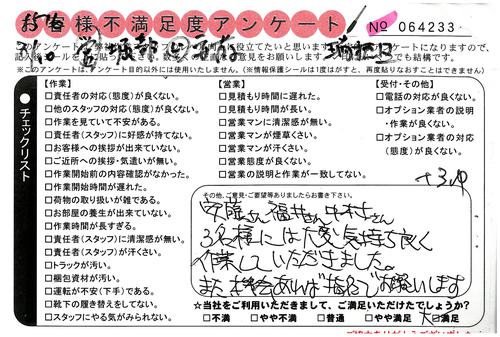 お客様不満足度アンケート
No 064233
チェックリスト
【作業】
□責任者の対応(態度)が良くない。
□他のスタッフの対応(態度)が良くない。
□作業を見ていて不安がある。
□責任者(スタッフ)に好感が持てない。
□お客様への挨拶が出来ていない。
□ご近所への挨拶・気遣いが無い。
□作業開始前の内容確認がなかった。
□作業開始時間が遅れた。
□荷物の取り扱いが雑である。
□お部屋の養生が出来ていない。
□作業時間が長すぎる。
□責任者(スタッフ)に清潔感が無い。
□責任者(スタッフ)が汗くさい。
□トラックが汚い。
□梱包資材が汚い。
□運転が不安(下手)である。
□靴下の履き替えをしてない。
□スタッフにやる気がみられない。
【営業】
□見積もり時間に遅れた。
□見積もり時間が長い。
□営業マンに清潔感が無い。
□営業マンが煙草くさい。
□営業マンが汗くさい。
□営業態度が良くない。
□営業の説明と作業が一致してない。
【受付・その他】
□電話の対応が良くない。
□オプション業者の説明
・作業が良くない。
□オプション業者の対応
(態度)が良くない。
その他、ご意見・ご要望等ありましたらお書き下さい。
安隆さん福井さん中村さん
3名様には大変気持ち良く
作業していただきました。
また機会あれば指名でお願いします
☆当社をご利用いただきまして、ご満足いただけたでしょうか?
□不満 □やや不満 □普通 □やや満足 大□満足